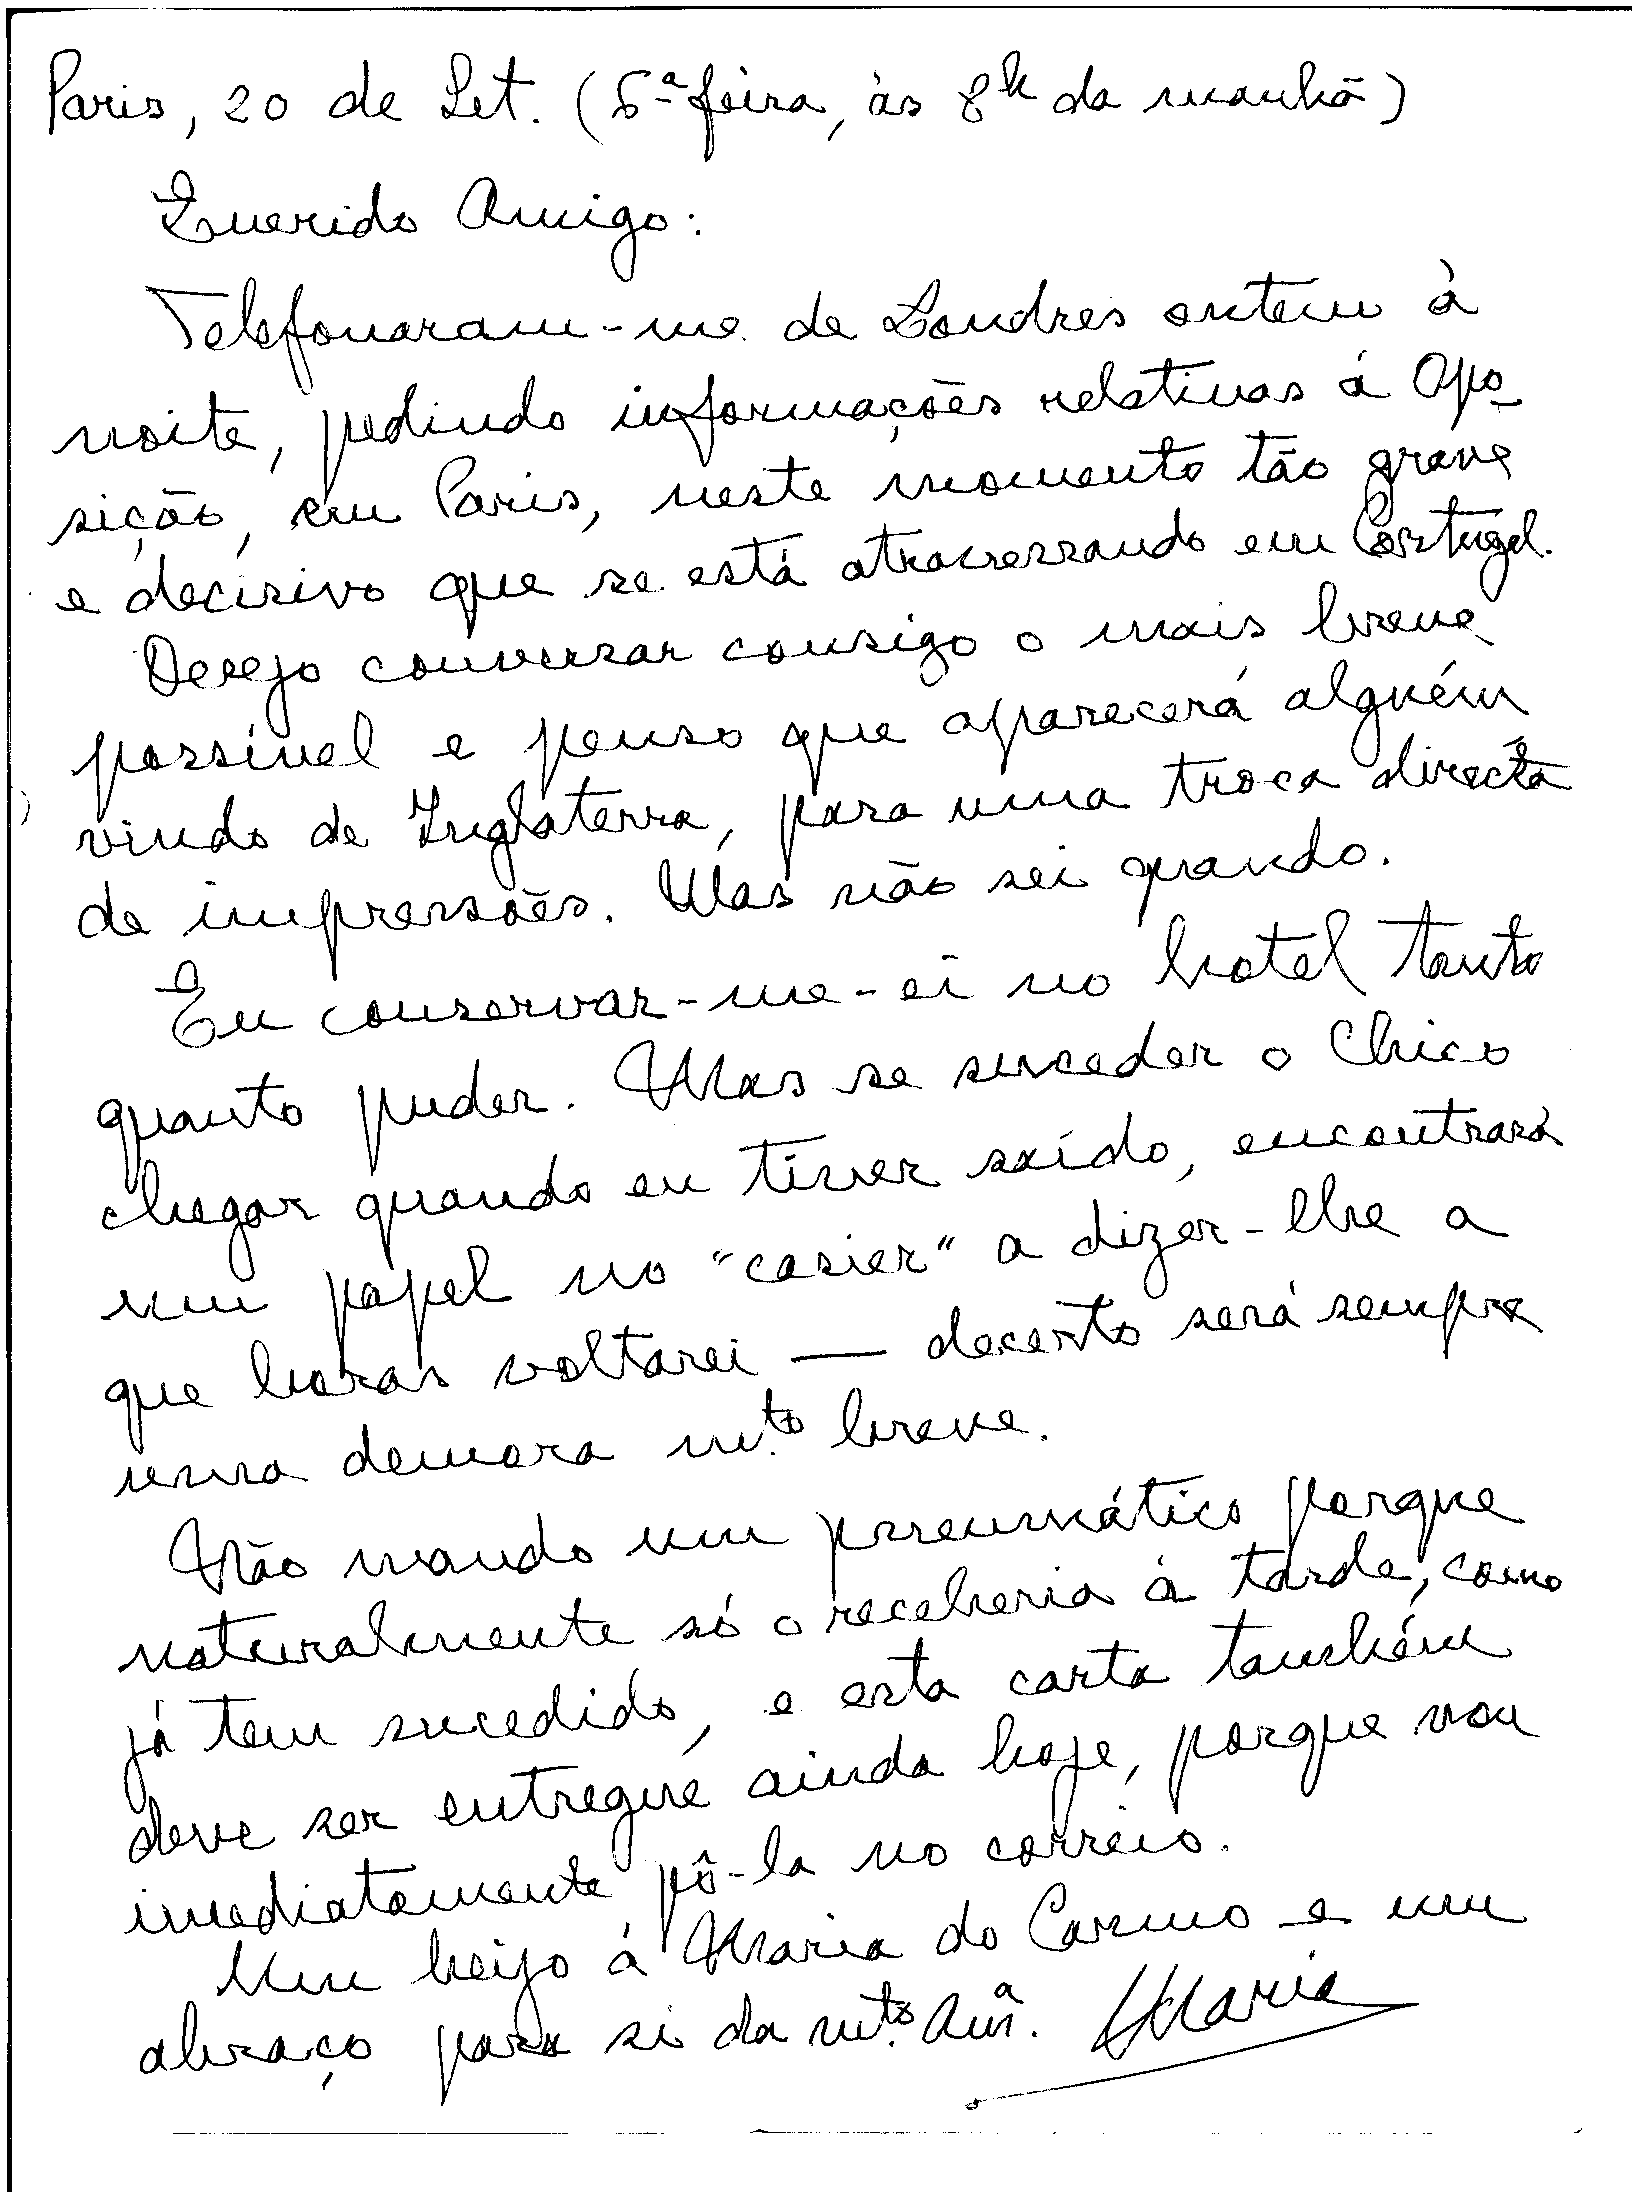 Paris, 20 de Set. (6ª feira, às 8h da manhã)
Querido Amigo:
Telefonaram-me de Londres ontem à
noite, pedindo informações relativas à Opo-
sição, em Paris, neste momento tão grave
e decisivo que se está atravessando em Portugal.
Desejo conversar consigo o mais breve
possível e penso que aparecerá alguém
vindo de Inglaterra, para uma troca directa
de impressões. Mas não sei quando.
Eu conservar-me-ei no hotel tanto
quanto puder. Mas se suceder o Chico
chegar quando eu tiver saído, encontrará
um papel no "casier" a dizer-lhe a
que horas voltarei — decerto será sempre
uma demora mt.º breve.
Não mando um pneumático porque
naturalmente só o receberia à tarde, como
já tem sucedido, e esta carta também
deve ser entregue ainda hoje, porque vou
imediatamente pô-la no correio.
Um beijo à Maria do Carmo e um
abraço para si da mt.º Amª. Maria